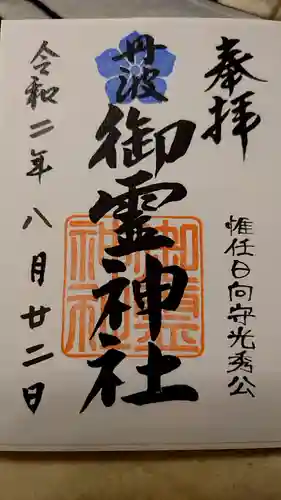 奉拝
惟任日向守光秀公
丹波
御霊神社
令和二年八月廿二日